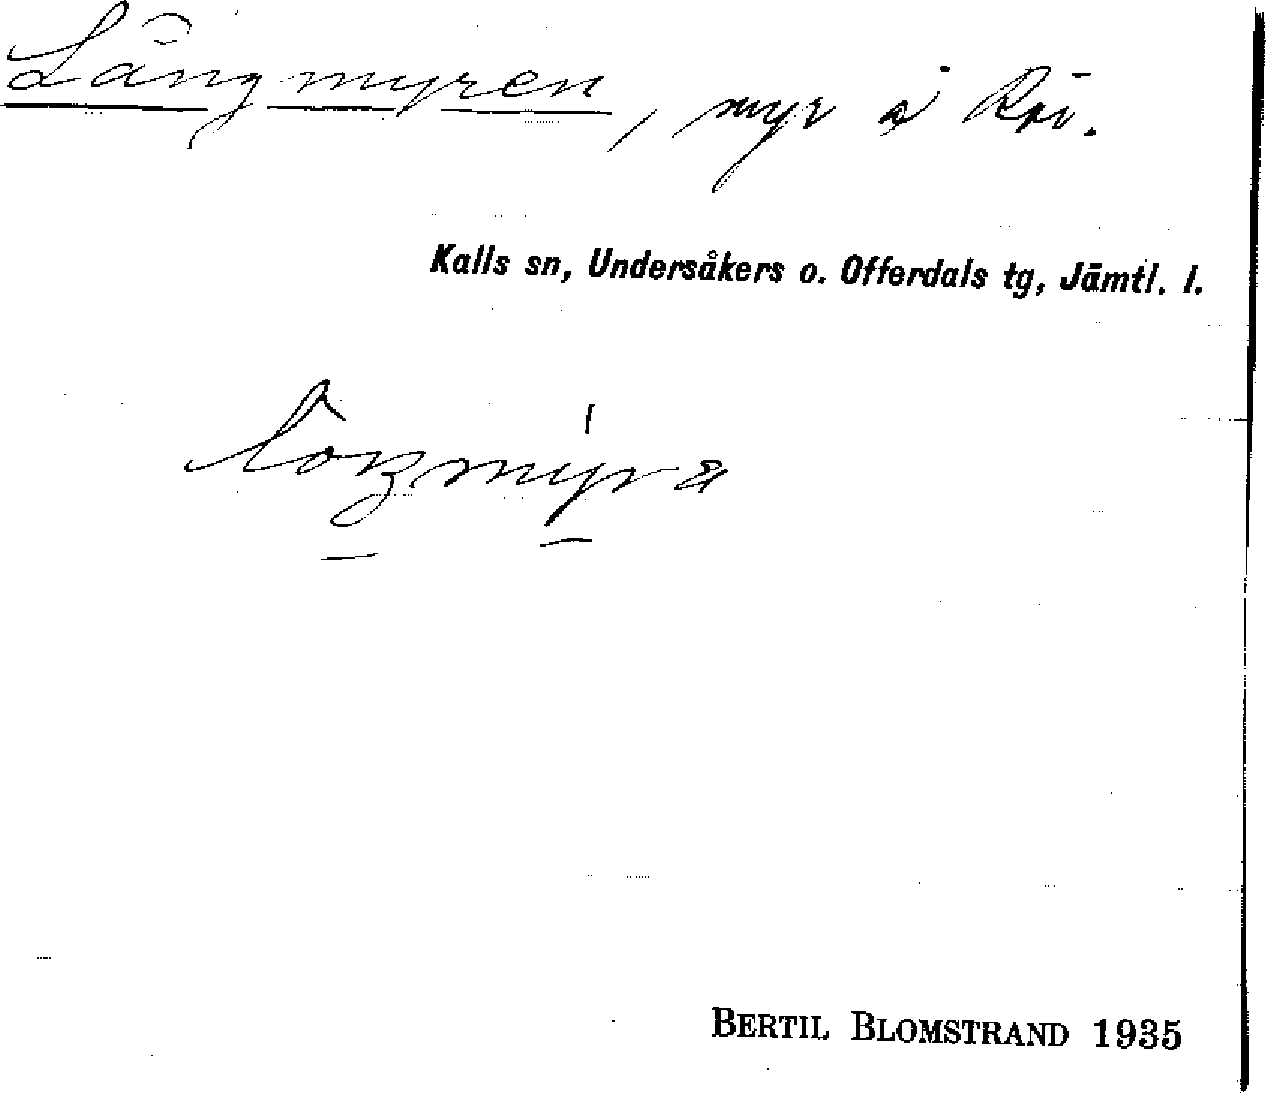 Långmyren, myr i
Kalls sn, Undersåkers o. Offerdals tg, Jämtl. l.
BERTIL BLOMSTRAND 1935